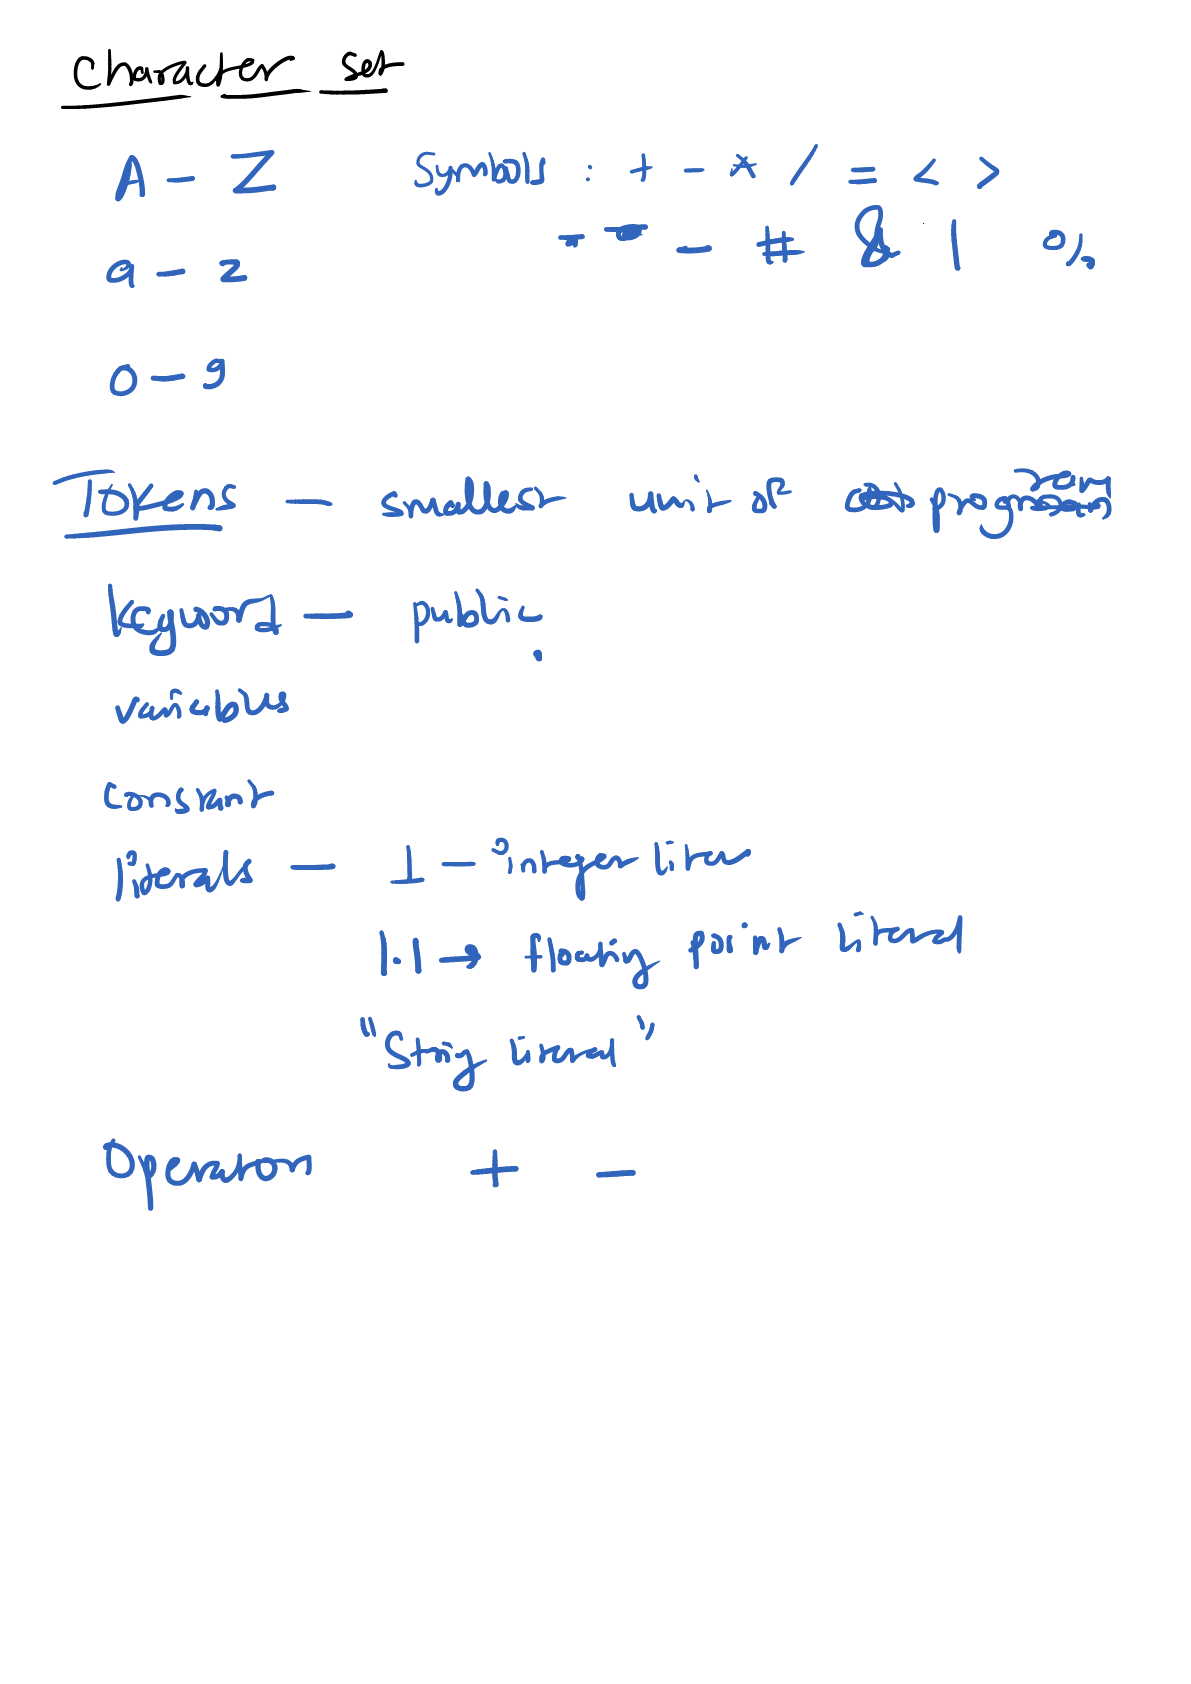 Character set
A - Z Symbols : + - * / = < >
a - z - # & | %
0 - 9
Tokens - smallest unit of program
keyword - public
variables
constant
literals - 1 - integer litera
1.1 → floating point literal
"String literal"
Operator + -